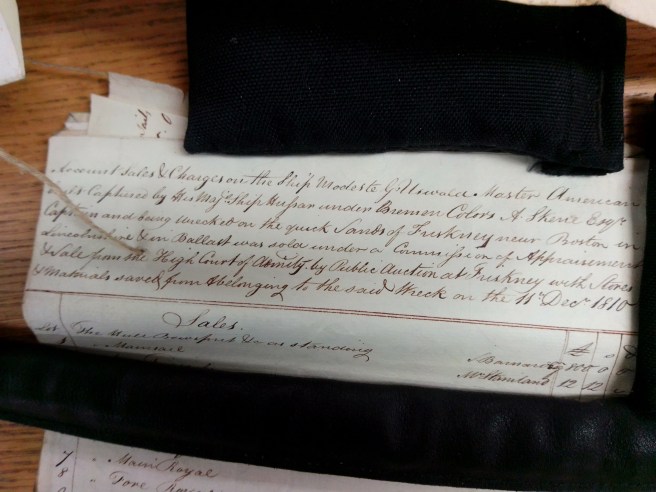 Account Sales & Charges on the Ship Modeste Griswold Master American
Captured by His Maj's Ship Hussar under Bremen Colers A. Skene Esqr
Captain and being wrecked on the quick Sands of Friskney near Boston in
Lincolnshire & in Ballast was sold under a Commission of Appraisement
& Sale from the High Court of Admty by Public Auction at Friskney with Stores
& Materials saved from & belonging to the said Wreck on the 11th Decr 1810
Sales.
Lot The Bowsprit &c as standing 100 0
Mainsail Mr 12 12
7 " Main Royal
8 " Fore